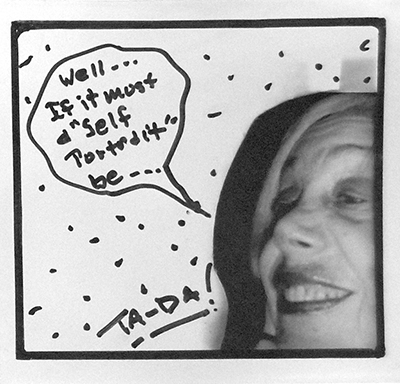 Well---
If it must
a "Self
Portrait"
be ---
TA-DA!